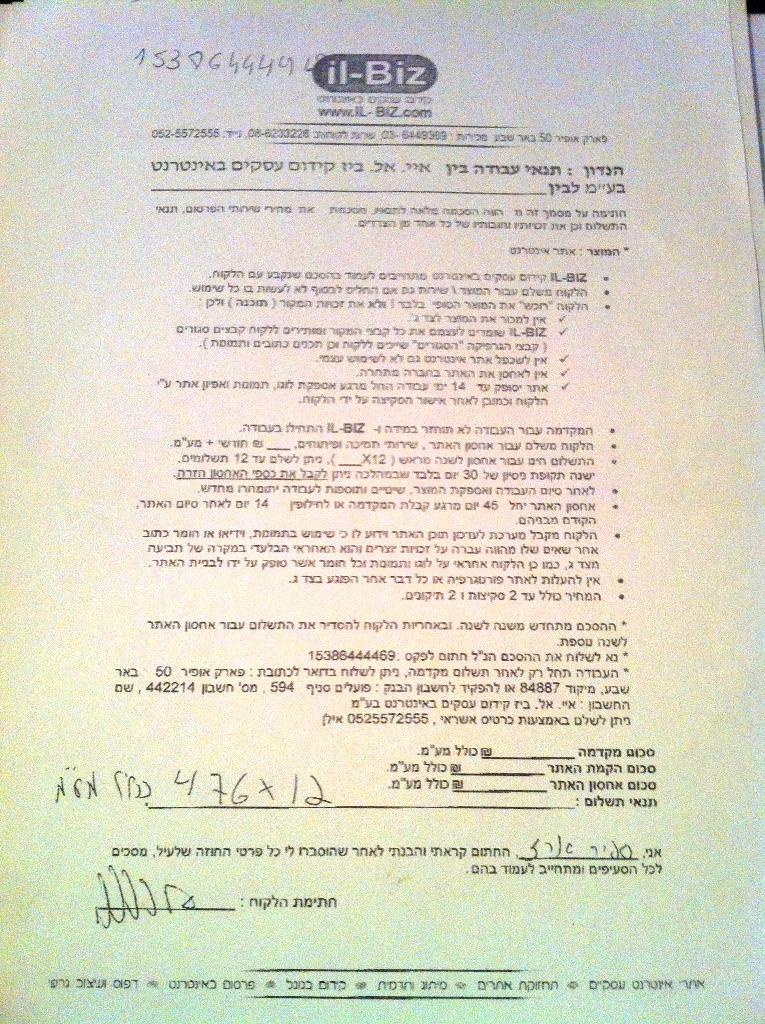 il-Biz
קידום עסקים באינטרנט
www.IL-BIZ.com
פארק אופיר 50 באר שבע מכירות: 03-6449369, שרות לקוחות: 08-6233226, נייד: 052-5572555
הנדון : תנאי עבודה בין איי. אל. ביז קידום עסקים באינטרנט
בע"מ לבין
חתימה על מסמך זה הסכמה מלאה את מחירי שירותי הפרסום, תנאי
התשלום וכן את זכויותיו וחובותיו של כל אחד מן הצדדים.
* המוצר : אתר אינטרנט
• IL-BIZ קידום עסקים באינטרנט מתחייבים לעמוד בהסכם שנקבע עם הלקוח.
• הלקוח משלם עבור המוצר \ שירות גם אם החליט לבסוף לא לעשות בו כל שימוש.
• הלקוח "רוכש" את המוצר הסופי בלבד ! ולא את זכויות המקור ( תוכנה ) ולכן :
✓ אין למכור את המוצר לצד ג'.
✓ IL-BIZ שומרים לעצמם את כל קבצי המקור ומתירים ללקוח קבצים סגורים
( קבצי הגרפיקה "הסגורים" שייכים ללקוח וכן תכנים כתובים ותמונות ).
✓ אין לשכפל אתר אינטרנט גם לא לשימוש עצמי.
✓ אין לאחסן את האתר בחברה מתחרה.
✓ אתר יסופק עד 14 ימי עבודה החל מרגע אספקת לוגו, תמונות ואפיון אתר ע"י
הלקוח וכמובן לאחר אישור הסקיצה על ידי הלקוח.
• המקדמה עבור העבודה לא תוחזר במידה ו- IL-BIZ התחילו בעבודה.
• הלקוח משלם עבור אחסון האתר , שירותי תמיכה ופיתוחים, ___ ₪ חודשי + מע"מ.
התשלום הינו עבור אחסון לשנה מראש ( ___X12 ), ניתן לשלם עד 12 תשלומים.
• ישנה תקופת ניסיון של 30 יום בלבד שבמהלכה ניתן לקבל את כספי האחסון חזרה.
• לאחר סיום העבודה ואספקת המוצר, שינויים ותוספות לעבודה יתומחרו מחדש.
• אחסון האתר יחל 45 יום מרגע קבלת המקדמה או לחילופין 14 יום לאחר סיום האתר,
הקודם מבניהם.
• הלקוח מקבל מערכת לעדכון תוכן האתר וידוע לו כי שימוש בתמונות, וידיאו או חומר כתוב
אחר שאינם שלו מהווה עברה על זכויות יוצרים והוא האחראי הבלעדי במקרה של תביעה
מצד ג, כמו כן הלקוח אחראי על לוגו ותמונות וכל חומר אשר סופק על ידו לבניית האתר.
• אין להעלות לאתר פורנוגרפיה או כל דבר אחר הפוגע בצד ג.
• המחיר כולל עד 2 סקיצות ו 2 תיקונים.
* ההסכם מתחדש משנה לשנה. ובאחריות הלקוח להסדיר את התשלום עבור אחסון האתר
לשנה נוספת.
* נא לשלוח את ההסכם הנ"ל חתום לפקס : 15386444469
* העבודה תחל רק לאחר תשלום מקדמה, ניתן לשלוח בדואר לכתובת : פארק אופיר 50 באר
שבע, מיקוד 84887 או להפקיד לחשבון הבנק : פועלים סניף 594 , מס' חשבון 442214 , שם
החשבון : איי. אל. ביז קידום עסקים באינטרנט בע"מ
ניתן לשלם באמצעות כרטיס אשראי , 0525572555 אילן
סכום מקדמה ___ ₪ כולל מע"מ.
סכום הקמת האתר ___ ₪ כולל מע"מ.
סכום אחסון האתר ___ ₪ כולל מע"מ.
תנאי תשלום : 476 x 12 כולל מע"מ
אני, החתום קראתי והבנתי לאחר שהוסברו לי כל פרטי החוזה שלעיל, מסכים
לכל הסעיפים ומתחייב לעמוד בהם.
חתימת הלקוח :
אתרי אינטרנט עסקיים תחזוקת אתרים מיתוג ותדמית קידום בגוגל פרסום באינטרנט דפוס ועיצוב גרפי